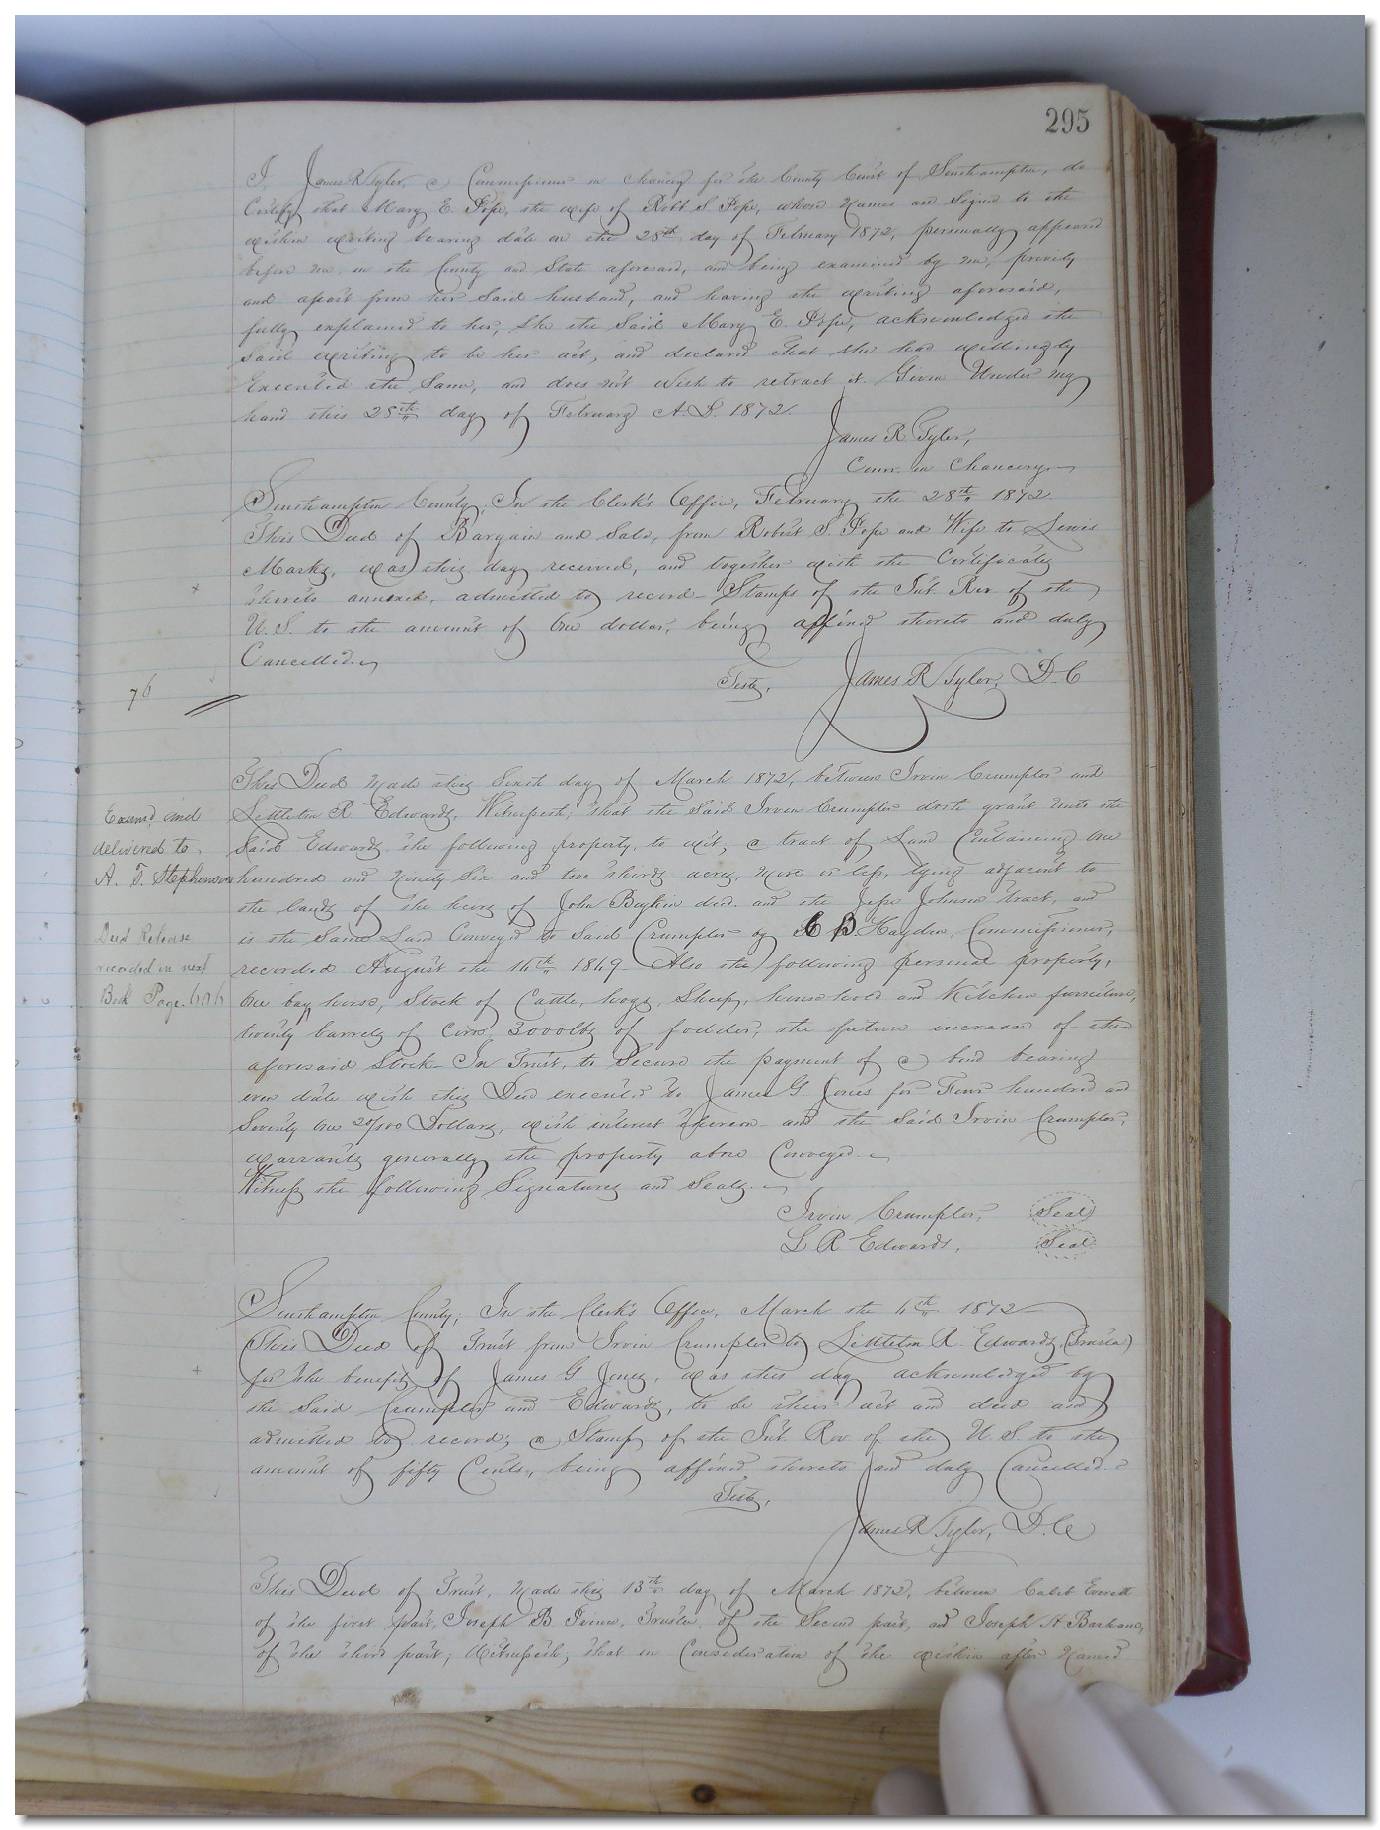 295
I, James R Tyler, a Commissioner in Chancery for the County Court of Southampton, do
Certify that Mary E. Pope, the wife of Robt S Pope, whose names are signed to the
within writing bearing date on the 28th day of February 1872, personally appeared
before me, in the County and State aforesaid, and being examined by me, privily
and apart from her said husband, and having the writing aforesaid,
fully explained to her, she the said Mary E. Pope, acknowledged the
said writing to be her act, and declared that she had willingly
Executed the same, and does not wish to retract it. Given Under my
hand this 28th day of February A.D. 1872.
James R Tyler,
Comr. in Chancery
Southampton County, In the Clerk's Office, February the 28th 1872.
This Deed of Bargain and Sale, from Robert S. Pope and Wife to Lewis
Marks, was this day received, and together with the Certificate
thereto annexed, admitted to record - Stamps of the Int. Rev of the
U. S. to the amount of One dollar, being affixed thereto and duly
Cancelled.
76
Teste, James R Tyler, D.C
This Deed made this Sixth day of March 1872, between Irvin Crumpler and
Littleton R Edwards, Witnesseth, that the said Irvin Crumpler doth grant unto the
Said Edwards the following property, to wit, a tract of Land Containing One
hundred and Ninety Six and two thirds acres, more or less, lying adjacent to
the lands of the heirs of John Boykin decd. and the Jesse Johnson tract, and
is the Same Land Conveyed to said Crumpler by C B Hayden, Commissioner,
recorded August the 16th 1869 - Also the following personal property,
One bay horse, Stock of Cattle, hogs, Sheep, household and Kitchen furniture,
twenty barrels of Corn, 3000lbs of fodder, the future increase of the
aforesaid Stock - In Trust, to Secure the payment of a bond bearing
even date with this Deed executed to James G. Jones for Four hundred and
Seventy One 20/100 Dollars, with interest thereon - and the said Irvin Crumpler,
warrants generally the property above Conveyed.
Witness the following Signatures and Seals.
Examd. and
delivered to
A. T. Stephenson
Deed Release
recorded in next
Book Page 606
Irvin Crumpler, Seal
L R Edwards, Seal
Southampton County; In the Clerk's Office, March the 6th 1872
This Deed of Trust from Irvin Crumpler to Littleton R. Edwards, (Trustee)
for the benefit of James G Jones, was this day acknowledged by
the Said Crumpler and Edwards, to be their act and deed and
admitted to record; a Stamp of the Int. Rev of the U. S. to the
amount of fifty Cents, being affixed thereto and duly Cancelled.
Teste,
James R Tyler, D.C
This Deed of Trust, Made this 13th day of March 1872, between Caleb Everett
of the first part, Joseph B Prince, Trustee, of the Second part, and Joseph H Barham,
of the third part; Witnesseth, that in Consideration of the within after Named